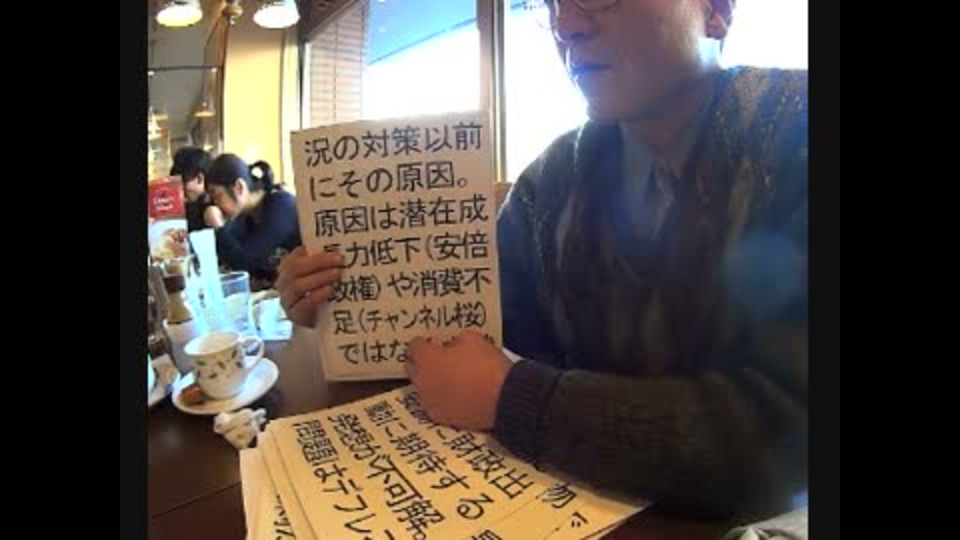 況の対策以前
にその原因。
原因は潜在成
長力低下(安倍
政権)や消費不
足(チャンネル桜)
ではな
に財政出
劇に期待する
発想が不可解。
問題はデフレ
物